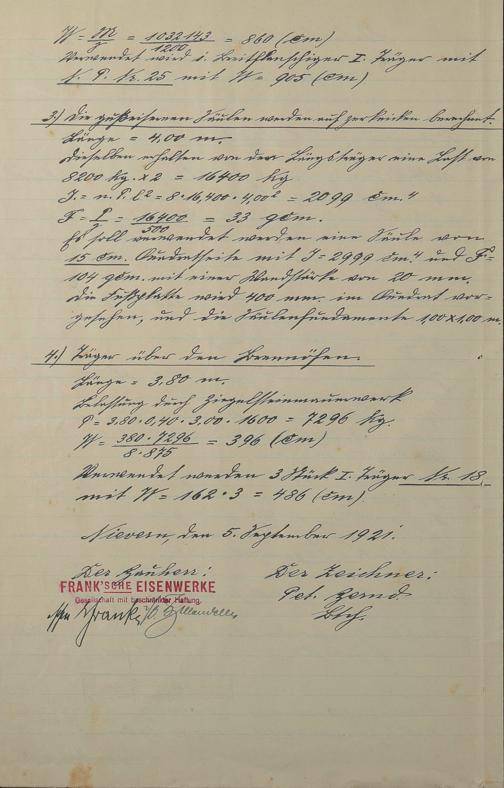 W = M/S = 1032143/1200 = 860 (cm)
Verwendet wird 1 breitflanschiger I. Träger mit
N. P. Nr. 25 mit W = 905 (cm)
3.) Die gußeisernen Säulen werden auf zerknicken berechnet.
Länge = 4,00 m.
Dieselben erhalten von den Längsträger eine Last von
8200 kg. x 2 = 16400 kg
J. = n. P. l² = 8 · 16,400 · 4,00² = 2099 cm.4
F = P/ = 16400/500 = 33 qcm.
Es soll verwendet werden eine Säule von
15 cm. Quadratseite mit J = 2999 cm.4 und F =
104 qcm. mit einer Wandstärke von 20 mm.
Die Fußplatte wird 400 mm. im Quadrat vor-
gesehen, und die Säulenfundamente 1,00 x 1,00 m
4.) Träger über den Brennöfen.
Länge = 3,80 m.
Belastung durch Ziegelsteinmauerwerk
P = 3,80 · 0,40 · 3,00 · 1600 = 7296 kg.
W = 380 · 7296/8 · 875 = 396 (cm)
Verwendet werden 3 Stück I. Träger Nr. 18.
mit W = 162 · 3 = 486 (cm)
Nievern, den 5. September 1921.
Der Bauherr: Der Zeichner:
FRANK'SCHE EISENWERKE
Gesellschaft mit beschränkter Haftung.
Frank